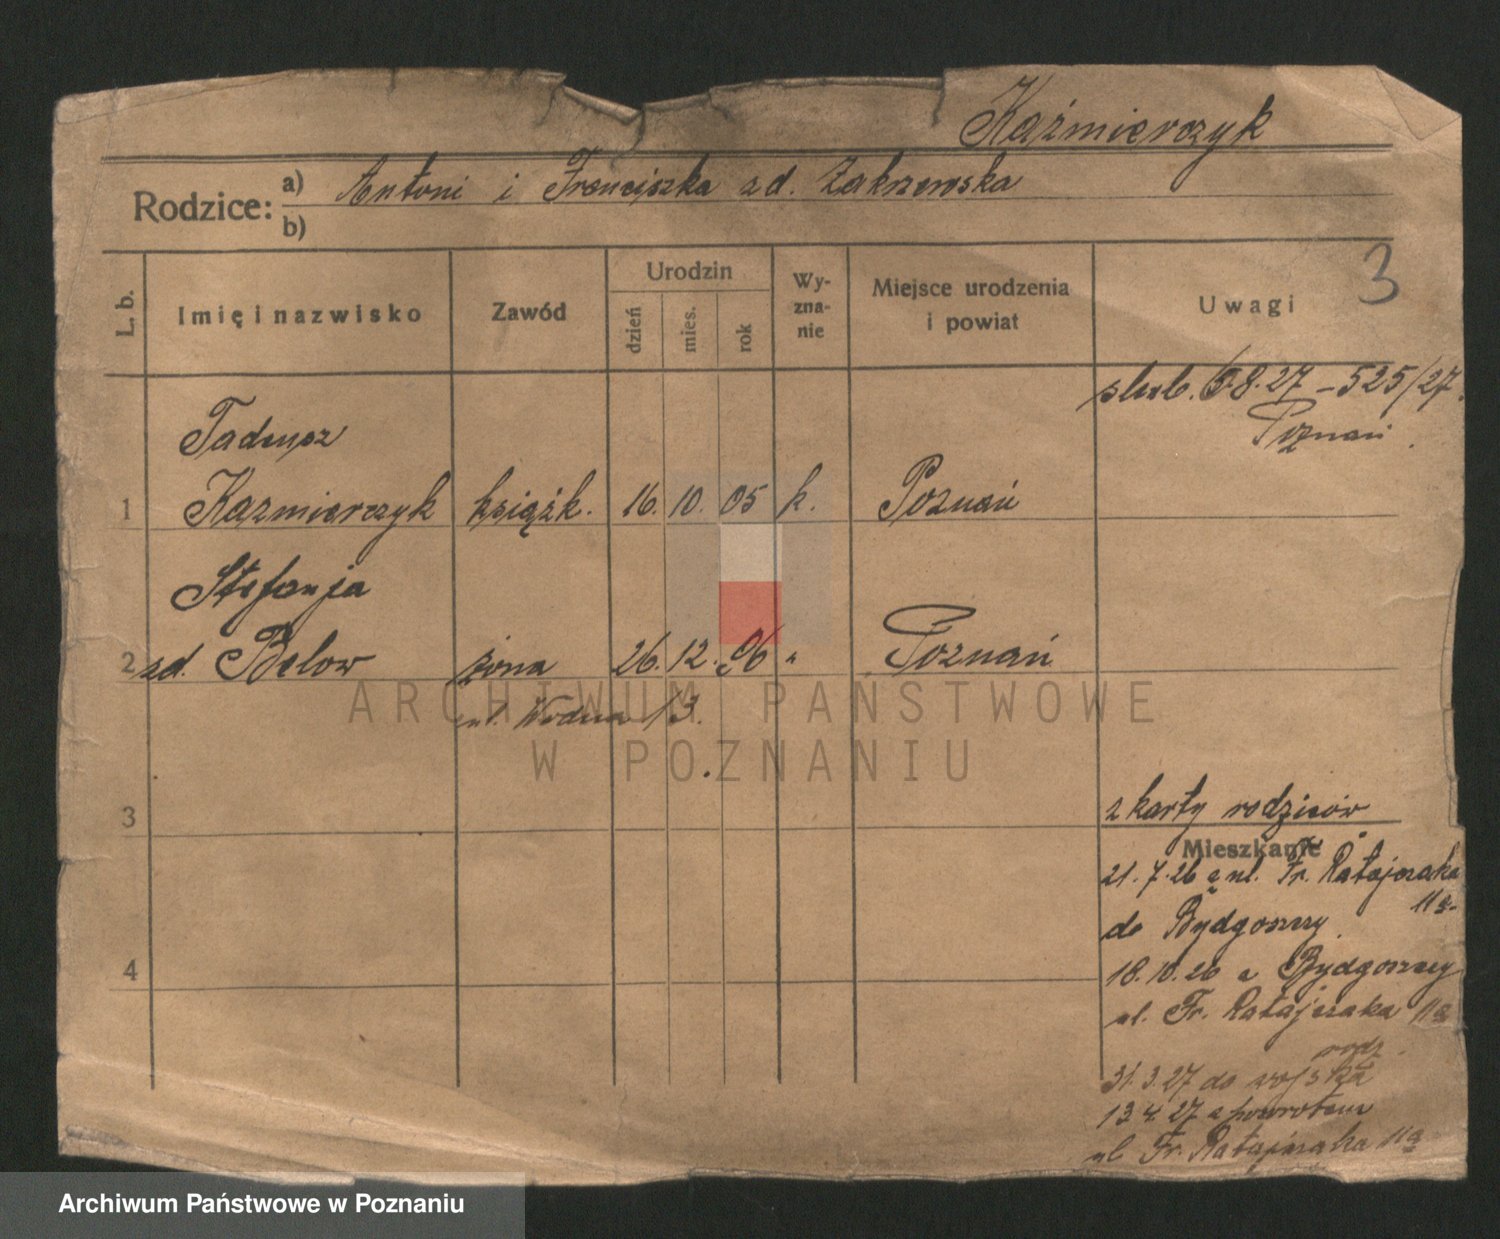 Kaźmierczyk
Rodzice: a) Antoni i Franciszka zd. Zakrzewska
b)
3
L. b.
Imię i nazwisko
Zawód
Urodzin
dzień
mies.
rok
Wy-
zna-
nie
Miejsce urodzenia
i powiat
Uwagi
ślub. 6.8.27 – 525/27.
Poznań.
Tadeusz
1 Kaźmierczyk książk. 16. 10. 05 k. Poznań
Stefanja
2 zd. Below żona 26. 12. 06 " Poznań
ul. Wodna 13.
3
z karty rodziców
Mieszkanie
21.7.26 z ul. Fr. Ratajczaka
11a
do Bydgoszczy.
4
18.10.26 z Bydgoszczy
ul. Fr. Ratajczaka 11a
rodz.
31.3.27 do wojska
13.4.27 z powrotem
ul Fr. Ratajczaka 11a
ARCHIWUM PAŃSTWOWE
W POZNANIU
Archiwum Państwowe w Poznaniu